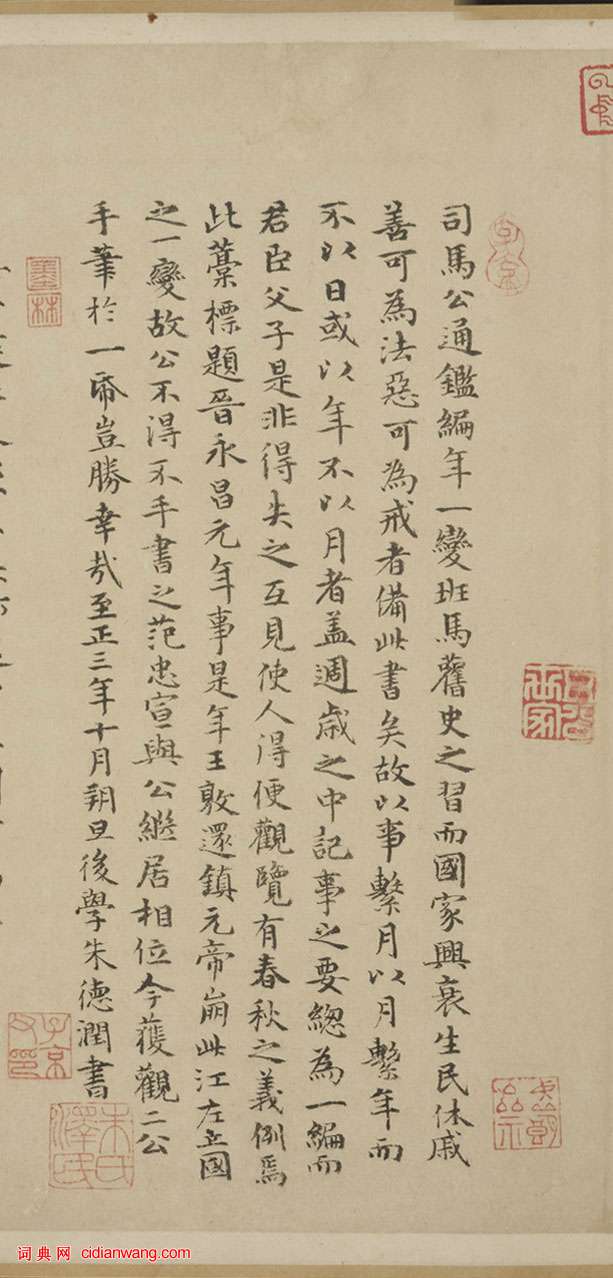 司馬公通鑑編年一變班馬舊史之習而國家興衰生民休戚
善可為法惡可為戒者備此書矣故以事繫月以月繫年而
不以日或以年不以月者盖週歲之中記事之要總為一編而
君臣父子是非得失之互見使人得便觀覽有春秋之義例焉
此藁標題晉永昌元年事是年王敦還鎮元帝崩此江左立國
之一變故公不得不手書之范忠宣與公繼居相位今獲觀二公
手筆於一帋豈勝幸哉至正三年十月朔旦後學朱德潤書
子京
墨林
子京父印
朱氏澤民
词典网 cidianwang.com